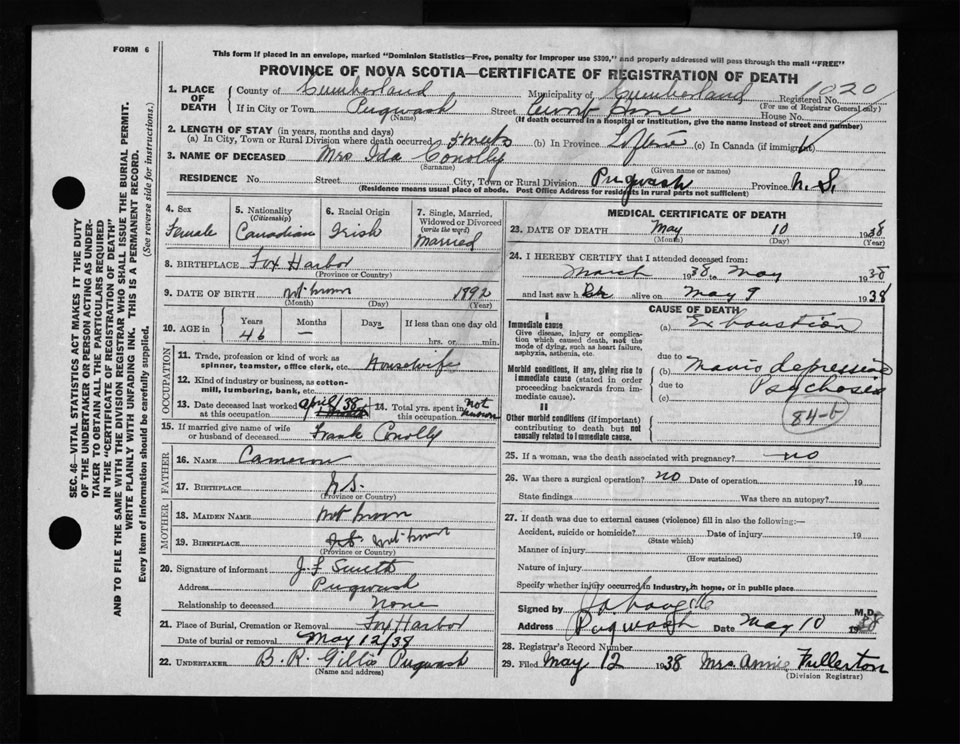 FORM 6
This form if placed in an envelope, marked "Dominion Statistics—Free, penalty for improper use $300," and properly addressed will pass through the mail "FREE"
PROVINCE OF NOVA SCOTIA—CERTIFICATE OF REGISTRATION OF DEATH
SEC. 46—VITAL STATISTICS ACT MAKES IT THE DUTY
OF THE UNDERTAKER OR PERSON ACTING AS UNDER-
TAKER TO OBTAIN ALL THE PARTICULARS REQUIRED
IN THE "CERTIFICATE OF REGISTRATION OF DEATH"
AND TO FILE THE SAME WITH THE DIVISION REGISTRAR WHO SHALL ISSUE THE BURIAL PERMIT.
WRITE PLAINLY WITH UNFADING INK. THIS IS A PERMANENT RECORD.
Every item of information should be carefully supplied.
(See reverse side for instructions.)
1. PLACE OF DEATH
County of Cumberland Municipality of Cumberland Registered No. 1020
(For use of Registrar General only)
If in City or Town Pugwash Street House No.
(Name) (If death occurred in a hospital or institution, give the name instead of street and number)
2. LENGTH OF STAY (in years, months and days)
(a) In City, Town or Rural Division where death occurred (b) In Province Lifetime (c) In Canada (if immigrant)
3. NAME OF DECEASED Mrs Ida Conolly
(Surname) (Given name or names)
RESIDENCE No. Street City, Town or Rural Division Pugwash Province N.S.
(Residence means usual place of abode. Post Office Address for residents in rural parts not sufficient)
4. Sex
Female
5. Nationality
(Citizenship)
Canadian
6. Racial Origin
Irish
7. Single, Married,
Widowed or Divorced
(write the word)
Married
8. BIRTHPLACE Fox Harbor
(Province or Country)
9. DATE OF BIRTH not known 1892
(Month) (Day) (Year)
10. AGE in
Years Months Days If less than one day old
46 — hrs. or min.
OCCUPATION
11. Trade, profession or kind of work as
spinner, teamster, office clerk, etc. Housewife
12. Kind of industry or business, as cotton-
mill, lumbering, bank, etc.
13. Date deceased last worked
at this occupation April/38
14. Total yrs. spent in
this occupation not known
15. If married give name of wife
or husband of deceased Frank Conolly
FATHER
16. NAME Cameron
17. BIRTHPLACE N.S.
(Province or Country)
MOTHER
18. MAIDEN NAME not known
19. BIRTHPLACE not known
(Province or Country)
20. Signature of informant J. F. Smith
Address Pugwash
Relationship to deceased None
21. Place of Burial, Cremation or Removal Fox Harbor
Date of burial or removal May 12/38
22. UNDERTAKER B. R. Gillis Pugwash
(Name and address)
MEDICAL CERTIFICATE OF DEATH
23. DATE OF DEATH May 10 1938
(Month) (Day) (Year)
24. I HEREBY CERTIFY that I attended deceased from:
March 1938 to May 1938
and last saw h er alive on May 9 1938
CAUSE OF DEATH
I
Immediate cause
Give disease, injury, or complica-
tion which caused death, not the
mode of dying, such as heart failure,
asphyxia, asthenia, etc.
(a) Exhaustion
due to
Morbid conditions, if any, giving rise to
immediate cause (stated in order
proceeding backwards from im-
mediate cause).
(b) Manic depressive
due to Psychosis
(c)
84-b
II
Other morbid conditions (if important)
contributing to death but not
causally related to immediate cause.
25. If a woman, was the death associated with pregnancy? no
26. Was there a surgical operation? no Date of operation 19
State findings Was there an autopsy?
27. If death was due to external causes (violence) fill in also the following:—
Accident, suicide or homicide? Date of injury 19
(State which)
Manner of injury
(How sustained)
Nature of injury
Specify whether injury occurred in industry, in home, or in public place
Signed by M.D.
Address Pugwash Date May 10 1938
28. Registrar's Record Number
29. Filed May 12 1938 Mrs. Annie Fullerton
(Division Registrar)